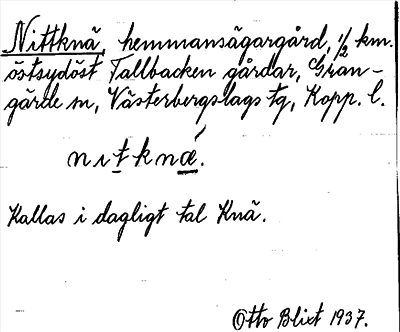 Nittknä, hemmansägargård, 1/2 km.
östsydöst Tallbacken gårdar, Gran-
gärde sn, Västerbergslags tg, Kopp. l.
nıtknǽ.
Kallas i dagligt tal Knä.
Otto Blixt 1937.